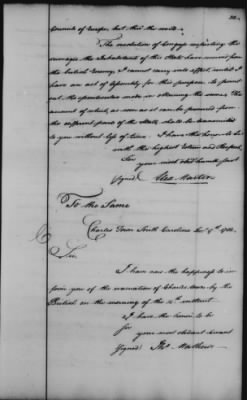 Councils of Europe but this the most.
The resolution of Congress respecting the
ravages the Inhabitants of this State have received from
the British Enemy, I cannot carry into effect, until I
have an act of Assembly for this purpose to point
out the mode in obtaining the same. The
amount of which, as soon as it can be procured from
the different parts of the State, shall be transmitted
to you without loss of time. I have the honor to be
with the highest Esteem and Respect,
Sir
your most obed humble servt
Signed Alex Martin
To the Same
Charles Town South Carolina 1782.
Sir,
I have now the happiness to in
form you of the evacuation of Charles town by the
British on the morning of the 14th instant
I have the honor to be
Sir
your most obedient servant
Signed Jno Mathews